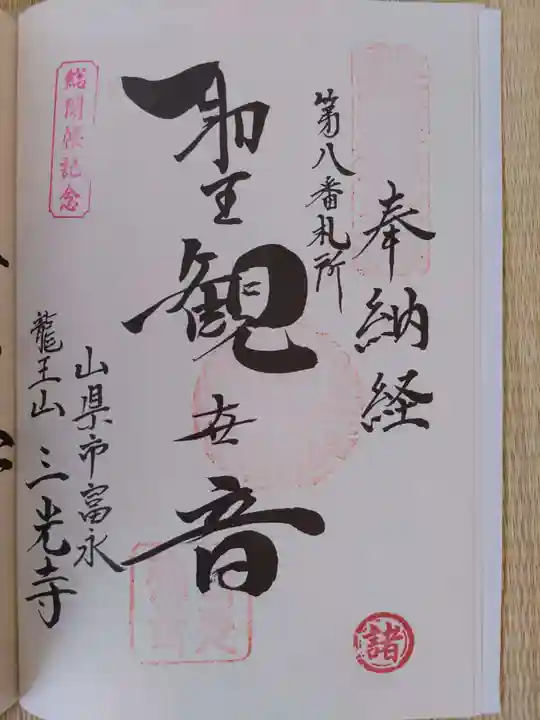 奉納経
第八番札所
聖観世音
山県市富永
龍王山 三光寺
総開帳記念
諸